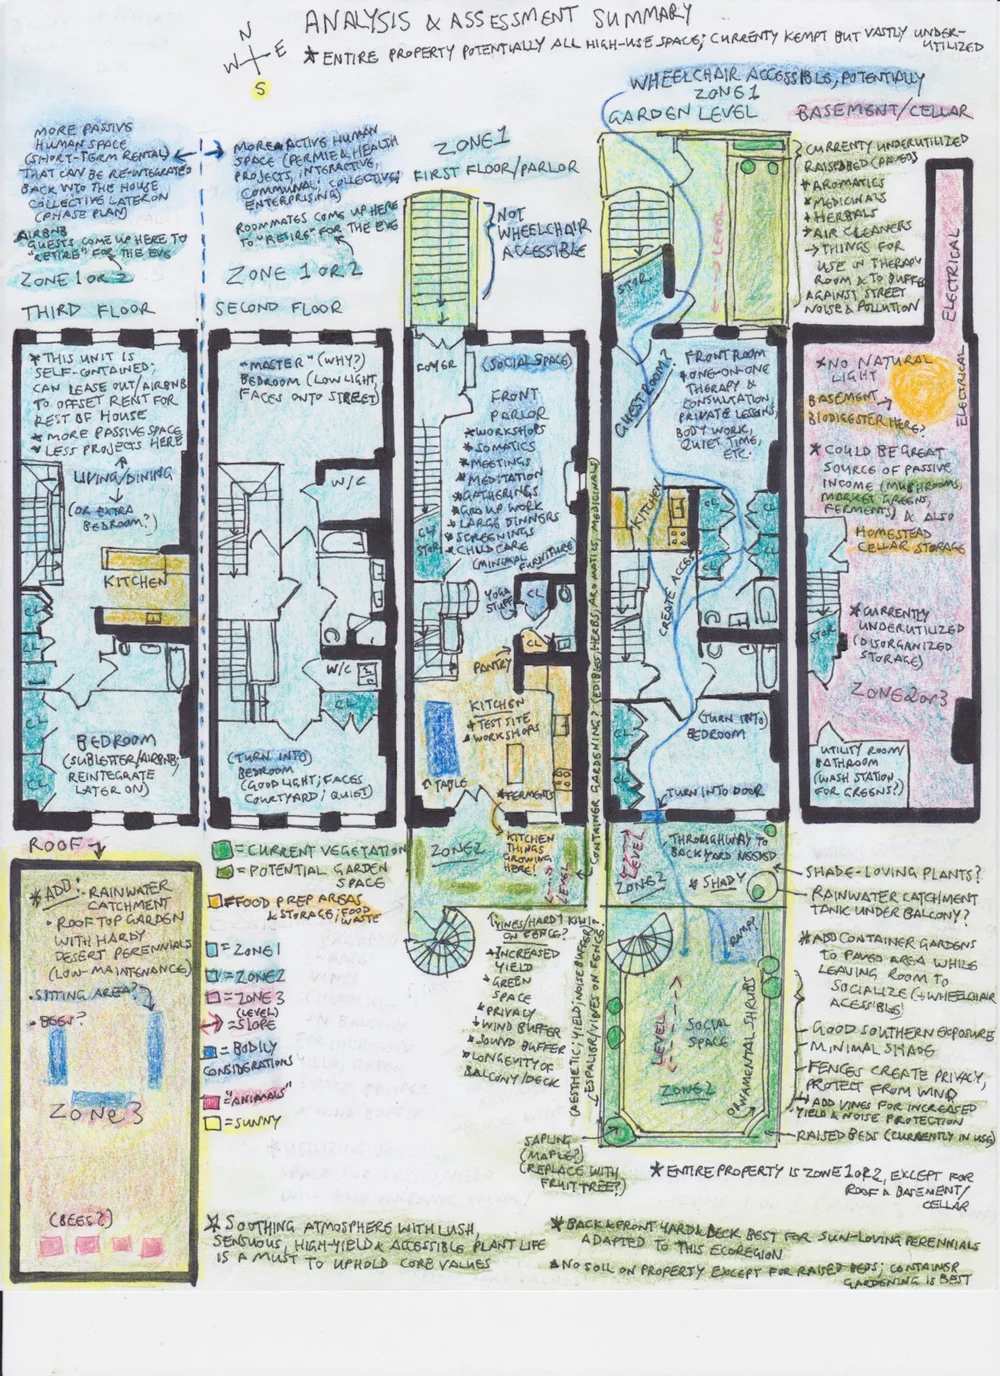 ANALYSIS & ASSESSMENT SUMMARY
* ENTIRE PROPERTY POTENTIALLY ALL HIGH-USE SPACE; CURRENTY KEMPT BUT VASTLY UNDER-
UTILIZED
N
W E
S
MORE PASSIVE
HUMAN SPACE
(SHORT-TERM RENTAL)
THAT CAN BE RE-INTEGRATED
BACK INTO THE HOUSE
COLLECTIVE LATER ON
(PHASE PLAN)
AIRBNB
GUESTS COME UP HERE TO
"RETIRE" FOR THE EVE
ZONE 1 OR 2
THIRD FLOOR
MORE ACTIVE HUMAN
SPACE (PERMIE & HEALTH
PROJECTS, INTERACTIVE,
COMMUNAL, COLLECTIVE,
ENTERPRISING)
ROOMMATES COME UP HERE
TO "RETIRE" FOR THE EVE
ZONE 1 OR 2
SECOND FLOOR
ZONE 1
FIRST FLOOR/PARLOR
NOT
WHEELCHAIR
ACCESSIBLE
WHEELCHAIR ACCESSIBLE, POTENTIALLY
ZONE 1
GARDEN LEVEL
BASEMENT/CELLAR
CURRENTLY UNDERUTILIZED
RAISED BED (PAVED)
* AROMATICS
* MEDICINALS
* HERBALS
* AIR CLEANERS
→ THINGS FOR
USE IN THERAPY
ROOM & TO BUFFER
AGAINST STREET
NOISE & POLLUTION
LEVEL
STOR.
ELECTRICAL
ELECTRICAL
* THIS UNIT IS
SELF-CONTAINED;
CAN LEASE OUT/AIRBNB
TO OFFSET RENT FOR
REST OF HOUSE
* MORE PASSIVE SPACE
LESS PROJECTS HERE
LIVING/DINING
(OR EXTRA
BEDROOM?)
KITCHEN
CL
CL
CL
CL
BEDROOM
(SUBLETTER/AIRBNB,
REINTEGRATE
LATER ON)
"MASTER" (WHY?)
BEDROOM (LOW LIGHT,
FACES ONTO STREET)
W/C
W/C
CL
(TURN INTO)
BEDROOM
(GOOD LIGHT; FACES
COURTYARD; QUIET)
FOYER
(SOCIAL SPACE)
FRONT
PARLOR
* WORKSHOPS
* SOMATICS
* MEETINGS
* MEDITATION
* GATHERINGS
* GROUP WORK
* LARGE DINNERS
* SCREENINGS
* CHILDCARE
(MINIMAL FURNITURE)
CL/
STOR
YOGA
STUFF
CL
CL
PANTRY
KITCHEN
* TEST SITE
* WORKSHOPS
TABLE
* FERMENTS
ZONE 2
KITCHEN
THINGS
GROWING
HERE!
LEVEL
CONTAINER GARDENING? (EDIBLES, HERBS, AROMATICS, MEDICINALS)
GUESTROOM?
FRONT ROOM
* ONE-ON-ONE
THERAPY &
CONSULTATION,
PRIVATE LESSONS,
BODY WORK,
QUIET TIME,
ETC.
KITCHEN
CL
CL
CL
CL
CREATE ACCESS
CL
CL
(TURN INTO)
BEDROOM
TURN INTO DOOR
* NO NATURAL
LIGHT
BASEMENT
BIODIGESTER HERE?
* COULD BE GREAT
SOURCE OF PASSIVE
INCOME (MUSHROOMS,
MARKET GREENS,
FERMENTS) & ALSO
HOMESTEAD
CELLAR STORAGE
* CURRENTLY
UNDERUTILIZED
(DISORGANIZED
STORAGE)
STOR.
ZONE 2 OR 3
UTILITY ROOM/
BATHROOM
(WASH STATION
FOR GREENS?)
ROOF
* ADD: RAINWATER
CATCHMENT
• ROOFTOP GARDEN
WITH HARDY
DESERT PERENNIALS
(LOW-MAINTENANCE)
• SITTING AREA?
• BEES?
ZONE 3
(BEES?)
= CURRENT VEGETATION
= POTENTIAL GARDEN
SPACE
= FOOD PREP AREAS
& STORAGE; FOOD
WASTE
= ZONE 1
= ZONE 2
= ZONE 3
(LEVEL)
= SLOPE
= BODILY
CONSIDERATIONS
= "ANIMALS"
= SUNNY
VINES/HARDY KIWI?
ON FENCE?
* INCREASED
YIELD
* GREEN
SPACE
* PRIVACY
* WIND BUFFER
* SOUND BUFFER
* LONGEVITY OF
BALCONY/DECK
(AESTHETIC; YIELD; NOISE BUFFER)
ESPALIER/VINES ON FENCE.
LEVEL
THROUGHWAY TO
BACKYARD NEEDED
ZONE 2
* SHADY
RAMP?
LEVEL
SOCIAL
SPACE
ZONE 2
ORNAMENTAL SHRUBS
SHADE-LOVING PLANTS?
RAINWATER CATCHMENT
TANK UNDER BALCONY?
* ADD CONTAINER GARDENS
TO PAVED AREA WHILE
LEAVING ROOM TO
SOCIALIZE (+ WHEELCHAIR
ACESSIBLE)
GOOD SOUTHERN EXPOSURE
MINIMAL SHADE
FENCES CREATE PRIVACY,
PROTECT FROM WIND
ADD VINES FOR INCREASED
YIELD & NOISE PROTECTION
RAISED BEDS (CURRENTLY IN USE)
SAPLING
(MAPLE?)
(REPLACE WITH
FRUIT TREE?)
* ENTIRE PROPERTY IS ZONE 1 OR 2, EXCEPT FOR
ROOF & BASEMENT/
CELLAR
* SOOTHING ATMOSPHERE WITH LUSH,
SENSUOUS, HIGH-YIELD & ACCESSIBLE PLANT LIFE
IS A MUST TO UPHOLD CORE VALUES
* BACK & FRONT YARD & DECK BEST FOR SUN-LOVING PERENNIALS
ADAPTED TO THIS ECOREGION
* NO SOIL ON PROPERTY EXCEPT FOR RAISED BEDS; CONTAINER
GARDENING IS BEST